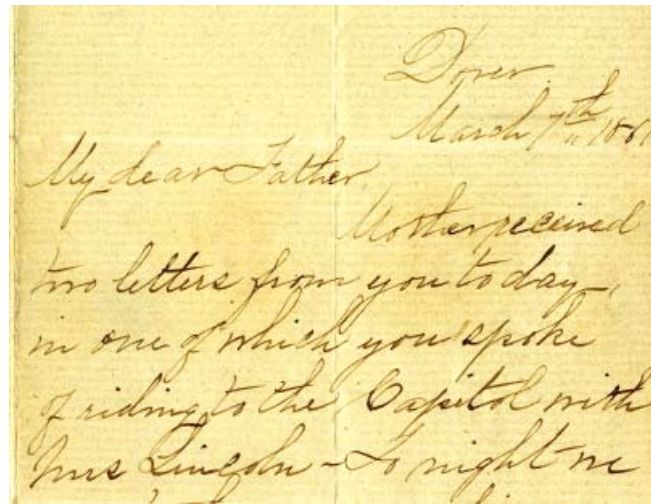 Dover.
March 7th 186
My dear Father.
Mother received
two letters from you today,
in one of which you spoke
of riding to the Capitol with
Mrs Lincoln - To night we